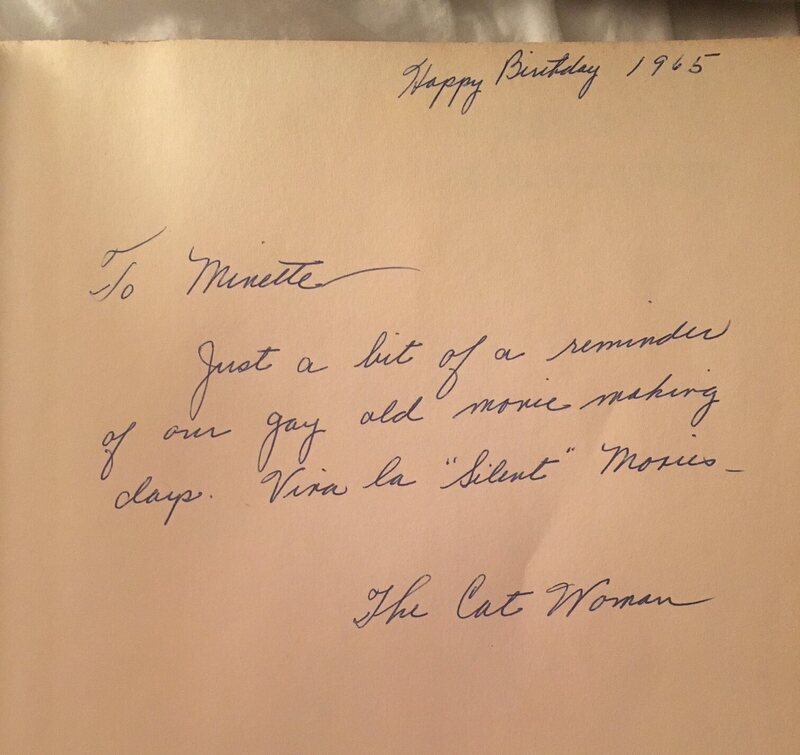 Happy Birthday 1965
To Minette
Just a bit of a reminder
of our gay old movie making
days. Viva la "Silent" Movies-
The Cat Woman